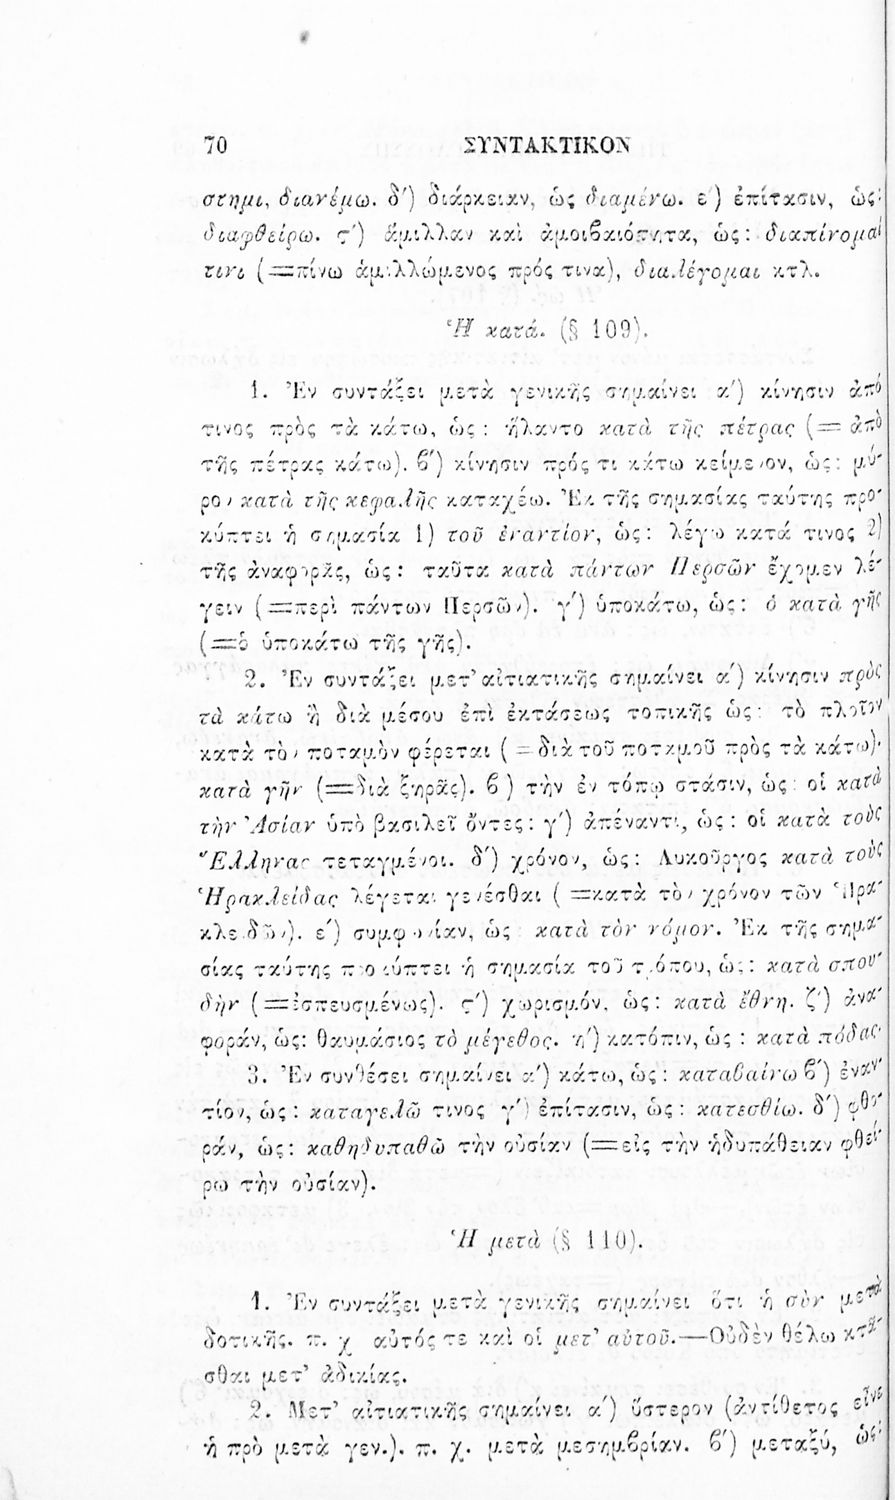 70 ΣΥΝΤΑΚΤΙΚΟΝ
στημι, διανέμω. δʹ) διάρκειαν, ὡς διαμένω. εʹ) ἐπίτασιν, ὡς·
διαφθείρω. ϛʹ) ἅμιλλαν καὶ ἀμοιβαιότητα, ὡς: διαπίνομαί
τινι (=πίνω ἁμιλλώμενος πρός τινα), διαλέγομαι κτλ.
Ἡ κατά. (§ 109).
1. Ἐν συντάξει μετὰ γενικῆς σημαίνει αʹ) κίνησιν ἀπό
τινος πρὸς τὰ κάτω, ὡς: ἥλαντο κατὰ τῆς πέτρας (= ἀπὸ
τῆς πέτρας κάτω). βʹ) κίνησιν πρός τι κάτω κείμενον, ὡς: μύ-
ρον κατὰ τῆς κεφαλῆς καταχέω. Ἐκ τῆς σημασίας ταύτης προ-
κύπτει ἡ σημασία 1) τοῦ ἐναντίον, ὡς: λέγω κατά τινος 2)
τῆς ἀναφορᾶς, ὡς: ταῦτα κατὰ πάντων Περσῶν ἔχομεν λέ-
γειν (=περὶ πάντων Περσῶν). γʹ) ὑποκάτω, ὡς: ὁ κατὰ γῆς
(=ὁ ὑποκάτω τῆς γῆς).
2. Ἐν συντάξει μετ' αἰτιατικῆς σημαίνει αʹ) κίνησιν πρὸς
τὰ κάτω ἢ διὰ μέσου ἐπὶ ἐκτάσεως τοπικῆς ὡς: τὸ πλοῖον
κατὰ τὸν ποταμὸν φέρεται (=διὰ τοῦ ποταμοῦ πρὸς τὰ κάτω)·
κατὰ γῆν (=διὰ ξηρᾶς). βʹ) τὴν ἐν τόπῳ στάσιν, ὡς: οἱ κατὰ
τὴν Ἀσίαν ὑπὸ βασιλεῖ ὄντες: γʹ) ἀπέναντι, ὡς: οἱ κατὰ τοὺς
Ἕλληνας τεταγμένοι. δʹ) χρόνον, ὡς: Λυκοῦργος κατὰ τοὺς
Ἡρακλείδας λέγεται γενέσθαι (=κατὰ τὸν χρόνον τῶν Ἡρα-
κλειδῶν). εʹ) συμφωνίαν, ὡς: κατὰ τὸν νόμον. Ἐκ τῆς σημα-
σίας ταύτης προκύπτει ἡ σημασία τοῦ τρόπου, ὡς: κατὰ σπου-
δὴν (=ἐσπευσμένως). ϛʹ) χωρισμόν, ὡς: κατὰ ἔθνη. ζʹ) ἀνα-
φοράν, ὡς: θαυμάσιος τὸ μέγεθος. ηʹ) κατόπιν, ὡς: κατὰ πόδας·
3. Ἐν συνθέσει σημαίνει αʹ) κάτω, ὡς: καταβαίνω βʹ) ἐναν-
τίον, ὡς: καταγελῶ τινος γʹ) ἐπίτασιν, ὡς: κατεσθίω. δʹ) φθο-
ράν, ὡς: καθηδυπαθῶ τὴν οὐσίαν (=εἰς τὴν ἡδυπάθειαν φθεί-
ρω τὴν οὐσίαν).
Ἡ μετὰ (§ 110).
1. Ἐν συντάξει μετὰ γενικῆς σημαίνει ὅτι ἡ σὺν μετὰ
δοτικῆς. π. χ αὐτός τε καὶ οἱ μετ' αὐτοῦ.—Οὐδὲν θέλω κτᾶ-
σθαι μετ' ἀδικίας.
2. Μετ' αἰτιατικῆς σημαίνει αʹ) ὕστερον (ἀντίθετος εἶνε
ἡ πρὸ μετὰ γεν.). π. χ. μετὰ μεσημβρίαν. βʹ) μεταξύ, ὡς·